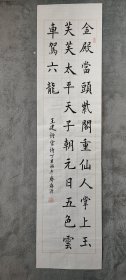 金殿當頭紫閣重仙人掌上玉
芙蓉太平天子朝元日五色雲
車駕六龍
王建